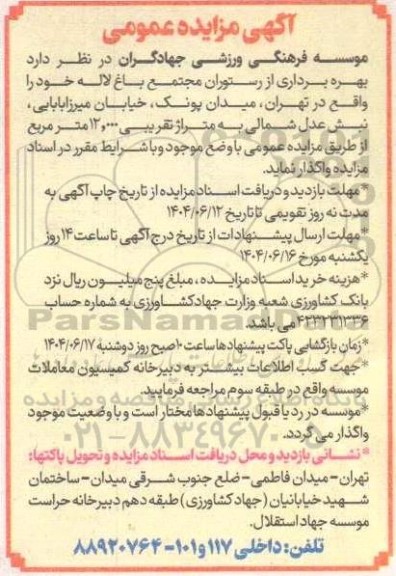 آگهی مزایده عمومی
موسسه فرهنگی ورزشی جهادگران در نظر دارد
بهره برداری از رستوران مجتمع باغ لاله خود را
واقع در تهران، میدان پونک، خیابان میرزابابایی،
نبش عدل شمالی به متراژ تقریبی ۱۲,۰۰۰ متر مربع
از طریق مزایده عمومی با وضع موجود و با شرایط مقرر در اسناد
مزایده واگذار نماید.
*مهلت بازدید و دریافت اسناد مزایده از تاریخ چاپ آگهی به
مدت نه روز تقویمی تا تاریخ ۱۴۰۴/۰۶/۱۲
*مهلت ارسال پیشنهادات از تاریخ درج آگهی تا ساعت ۱۴ روز
یکشنبه مورخ ۱۴۰۴/۰۶/۱۶
*هزینه خرید اسناد مزایده، مبلغ پنج میلیون ریال نزد
بانک کشاورزی شعبه وزارت جهادکشاورزی به شماره حساب
۴۲۳۲۳۱۳۳۶ می باشد.
*زمان بازگشایی پاکت پیشنهادها ساعت ۱۰ صبح روز دوشنبه ۱۴۰۴/۰۶/۱۷
*جهت کسب اطلاعات بیشتر به دبیرخانه کمیسیون معاملات
موسسه واقع در طبقه سوم مراجعه فرمایید.
*موسسه در رد یا قبول پیشنهادها مختار است و با وضعیت موجود
واگذار می گردد.
* نشانی بازدید و محل دریافت اسناد مزایده و تحویل پاکتها:
تهران- میدان فاطمی- ضلع جنوب شرقی میدان- ساختمان
شهید خیابانیان (جهاد کشاورزی) طبقه دهم دبیرخانه حراست
موسسه جهاد استقلال.
تلفن: داخلی ۱۱۷ و ۱۰۱-۸۸۹۲۰۷۶۴
ParsNamadData
۰۲۱-۸۸۳۴۹۶۷۰